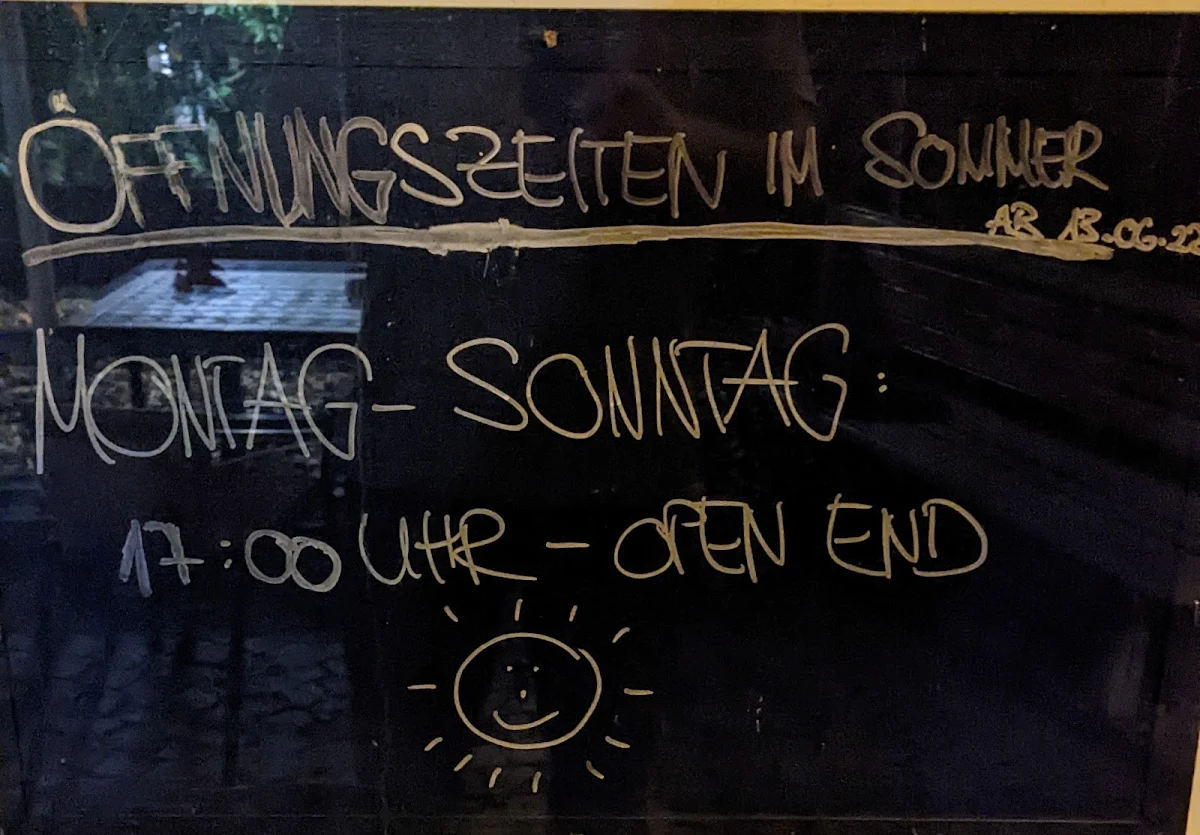 ÖFFNUNGSZEITEN IM SOMMER
AB 13.06.22
MONTAG - SONNTAG:
17:00 UHR - OPEN END